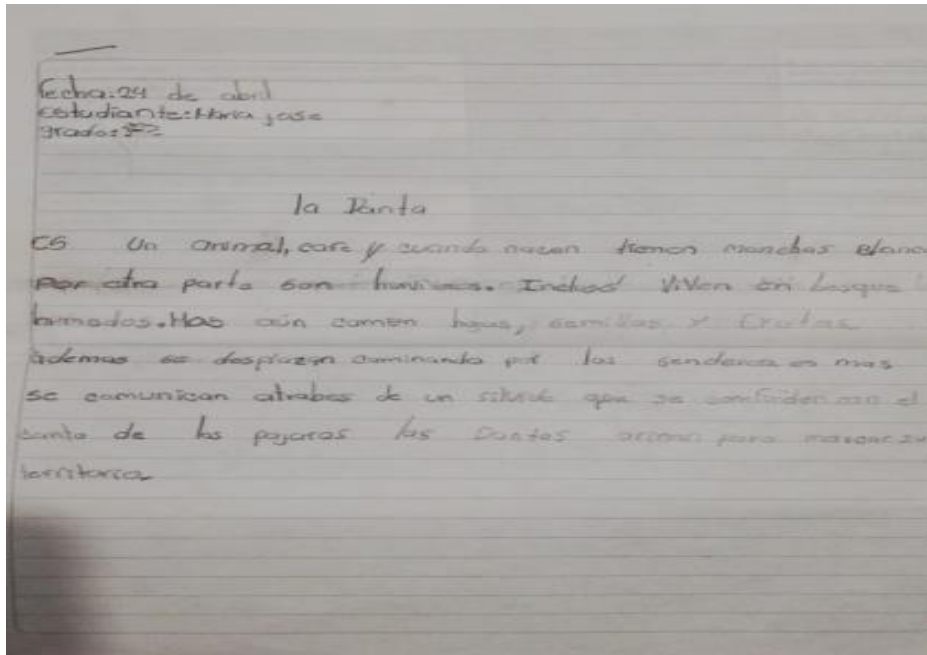 fecha: 24 de abril
estudiante: Maria jose
grado:
la Danta
ES Un animal, cafe y cuando nacen tienen manchas Blanc
por otra parte son. Incluso Viven en bosque
humedos. Mas aún comen hojas, semillas y frutas
ademas se desplazan caminando por los senderos es mas
se comunican atrabes de un silvido que se confunden con el
canto de los pajaros las Dantas orinan para marcar su
territorio